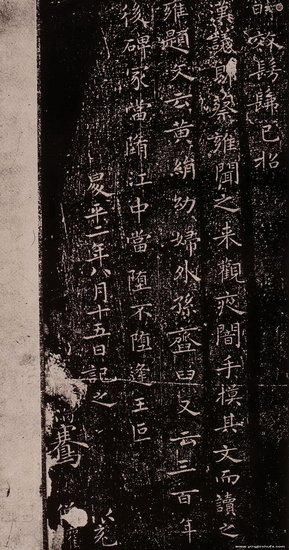 效髣髴以招
漢議郎蔡雍聞之來觀夜闇手摸其文而讀之
雍題文云黃絹幼婦外孫齏臼又云三百年
後碑冢當墮江中當墮不墮逢王叵
昇平二年八月十五日記之
www.yingbishufa.com